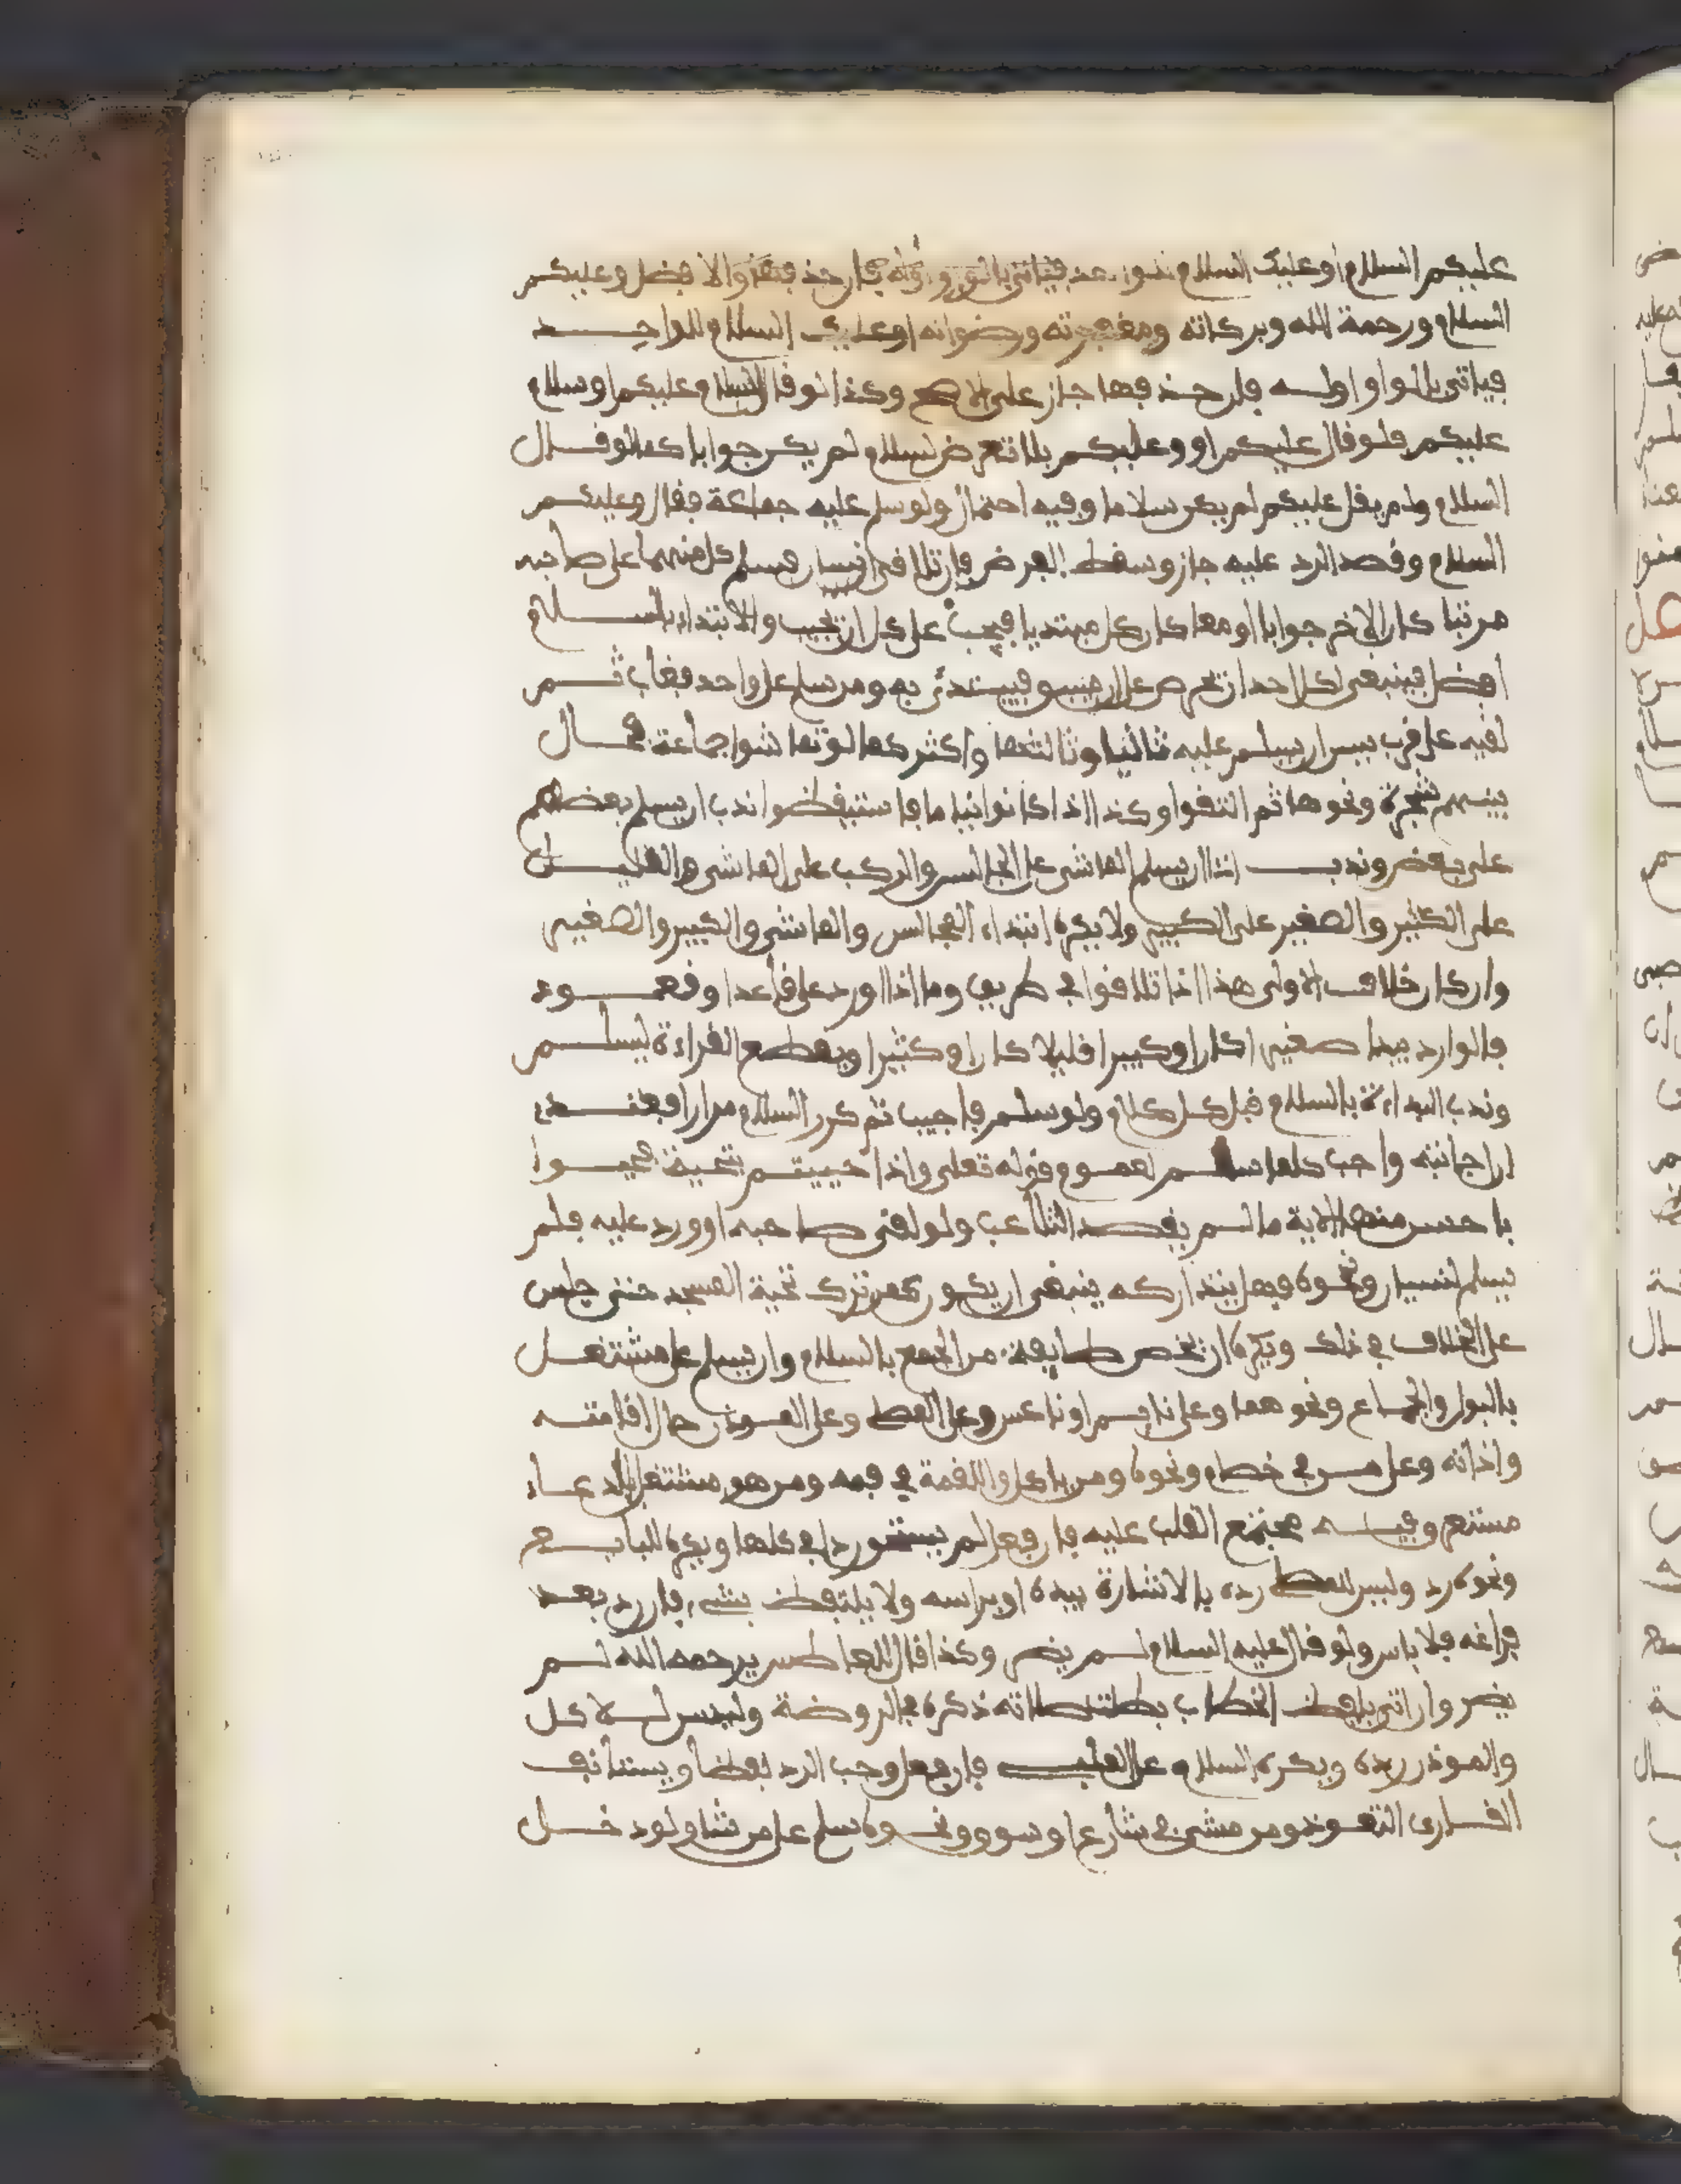 عليكم السلام او عليك السلام فياتي بالواو وله فان حذفهما والافضل وعليكم
السلام ورحمة الله وبركاته ومغفرته ورضوانه او عليك السلام للواحد
فياتي بالواو اوله فان حذفها جاز على الاصح وكذا لو قال السلام عليكم او سلام
عليكم فلو قال عليكم او وعليكم بلا تعرض لسلام لم يكن جوابا كما لو قال
السلام ولم يقل عليكم لم يكن سلاما وفيه احتمال ولو سلم عليه جماعة فقال وعليكم
السلام وقصد الرد عليه جاز وسقط الفرض فان تلاقى انسان فسلم كل منهما على صاحبه
مرتبا كان الاخر جوابا او معا كان كل مبتديا فيجب على كل ان يجيب والابتداء بالسلام
افضل فينبغي لكل احد ان يحرص على ان يسبق فيبتدئ به ومن سلم على واحد فغاب ثم
لقيه على قرب يسن ان يسلم عليه ثانيا وثالثا واكثر كما لو تماشوا جماعة فحال
بينهم شجرة ونحوها ثم التقوا وكذا اذا كانوا نياما فاستيقظوا ندب ان يسلم بعضهم
على بعض وندب ان يسلم الماشي على الجالس والركب على الماشي والقليل
على الكثير والصغير على الكبير ولا يكره ابتداء الجالس والماشي والكبير والصغير
وان كان خلاف الاولى هذا اذا تلاقوا في طريق وما اذا ورد على قاعد او قعود
فالوارد يبدا صغيرا كان او كبيرا قليلا كان او كثيرا ويقطع القراءة ليسلم
وندب البداءة بالسلام قبل كل كلام ولو سلم فاجيب ثم كرر السلام مرارا فعندي
ان اجابته واجب كلما سلم لعموم قوله تعلى واذا حييتم بتحية فحيوا
باحسن منها الاية ما لم يقصد التلاعب ولو لقى صاحبه او ورد عليه فلم
يسلم لنسيان ونحوه فهل يتداركه ينبغي ان يكون كمن ترك تحية المسجد حتى جلس
على الخلاف في ذلك ويكره ان يخص طايفة من الجمع بالسلام وان يسلم على مشتغل
بالبول والجماع ونحوهما وعلى نايم او ناعس وعلى المصل وعلى الموذن حال اقامته
واذانه وعلى من في حمام ونحوه ومن ياكل واللقمة في فمه ومن هو مشتغل بالدعاء
مستغرق فيه مجتمع القلب عليه فان فعل لم يستحق ردا في كلها ويكره للبايع
ونحوه رد وليس للمصل رده بالاشارة بيده او براسه ولا يلتفظ بشيء فان رد بعد
فراغه فلا باس ولو قال عليه السلام لم يضر وكذا قال للعاطس يرحمه الله لم
يضر وان اتى بلفظ الخطاب بطلت صلاته ذكره في الروضة وليس لاكل
والموذن رده ويكره السلام على الملبي فان فعل وجب الرد لفظا ويستانف
القارى التعوذ ومن مشى في شارع او سوق ونحوه سلم على من شا ولو دخل